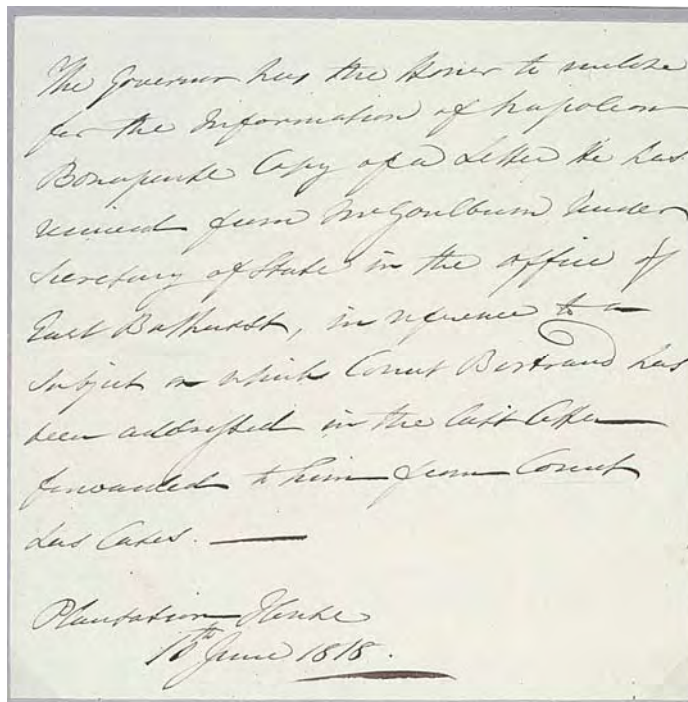 The Governor has the Honor to enclose
for the Information of Napoleon
Bonaparte Copy of a Letter He has
received from Mr Goulburn Under
Secretary of State in the office of
Earl Bathurst, in reference to a
subject on which Count Bertrand has
been addressed in the last letter
forwarded to him from Count
Las Cases. —
Plantation House
June 1818.